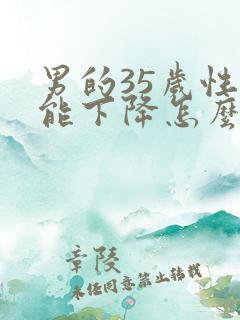 男的35歲性
能下降怎麽
章陵
未经同意禁止转载